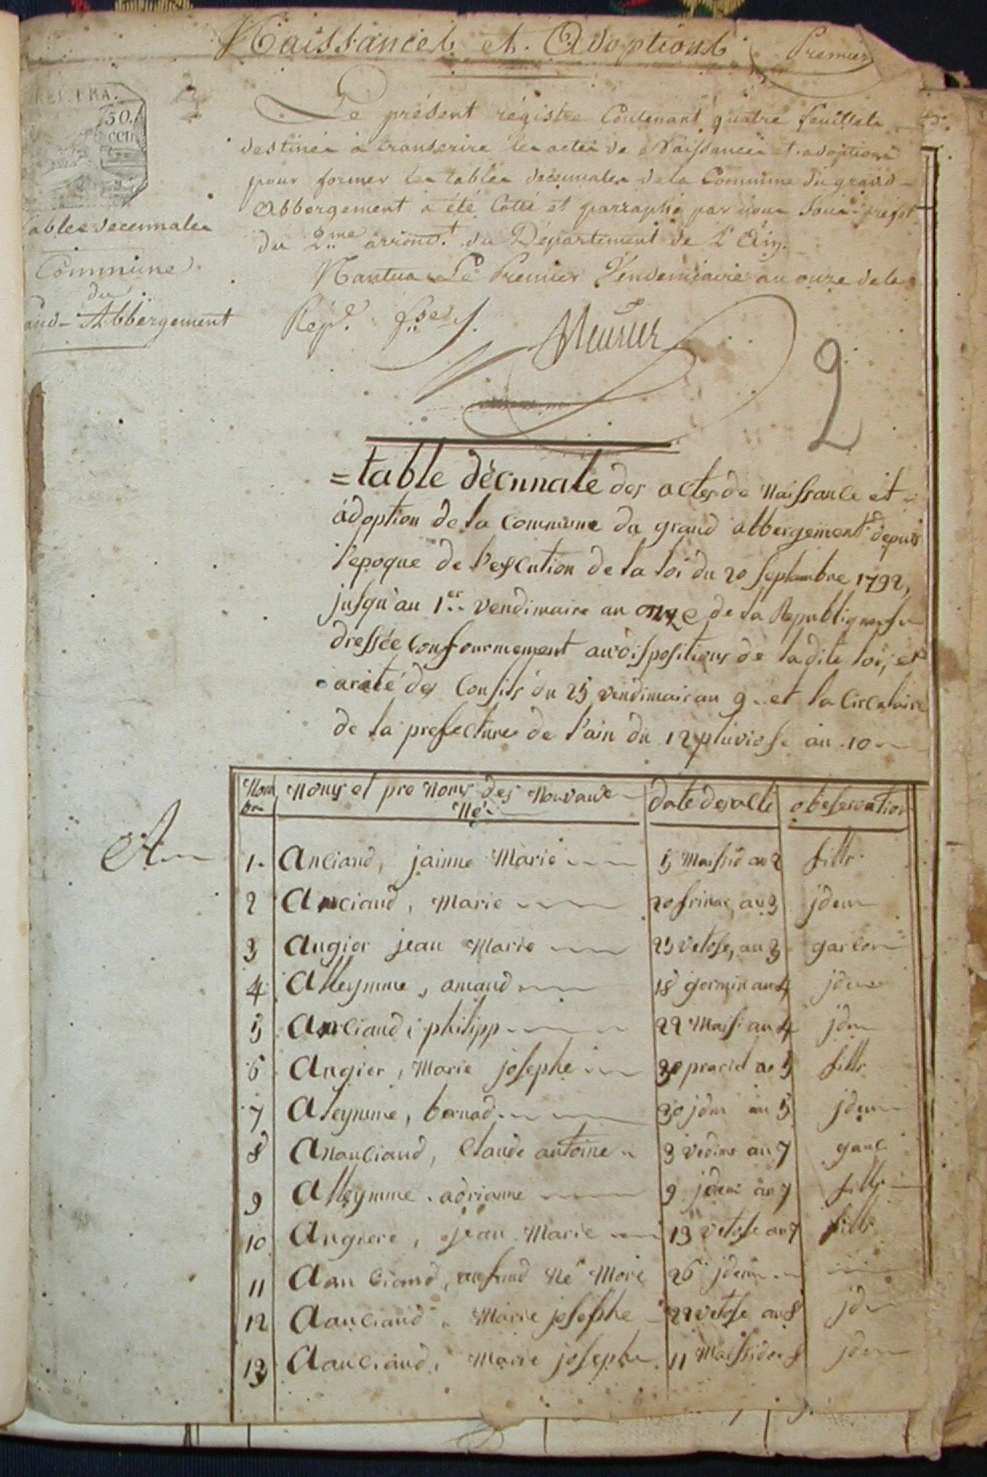 Naissances et Adoptions
Premier
RÉP. FRA.
50.
cen
Le présent régistre Contenant quatre feuillets
destinés à transcrire les actes de Naissances et adoptions
pour former les tables decennales de la Commune du grand
Abbergement a été Cotté et parraphé par nous Sous-préfet
du 2me arrond.t du Département de L'Ain.
Nantua Le Premier Vendemiaire an onze de la
Rép.e
ables decennales
Commune
du
and-Abbergement
2
= table décennale des actes de Naissance et
adoption de la Commune du grand abbergement depuis
l'epoque de l'exécution de la loi du 20 septembre 1792,
jusqu'au 1er vendimaire an onze de la Republique
dressée Conformement aux dispositions de la dite loi, et
areté des Consuls du 25 vendimair an 9 et la Circulaire
de la prefecture de l'ain du 12 pluviose an 10
Noms et pre Noms des Nouvaux
Né
date des acte
observation
A
1 Anciand, jainne Marie 5 Messid an 2 fille
2 Anciand, Marie 20 frimai, an 3 jdem
3 Angier jean Marie 25 vetose, an 3 garcon
4 Alleymme, amand 18 germin an 4 jdem
5 Anciand, philipp 22 Messi an 4 jdm
6 Angier, Marie josephe 30 preciel an 5 fille
7 Aleymme, bernad 30 jdm an 5 jdem
8 Ananciand, Claude antoine 3 vedime an 7 garc
9 Alleymme adrianne 9 jdem an 7 fille
10 Angiere, jean Marie 13 vetose an 7 fille
11 Aanciand, enfand Né More 26 jdem
12 Aanciand Marie josephe 22 vetose an 8 jd
13 Aanciand, Marie josephe 11 Messidor 8 jdem